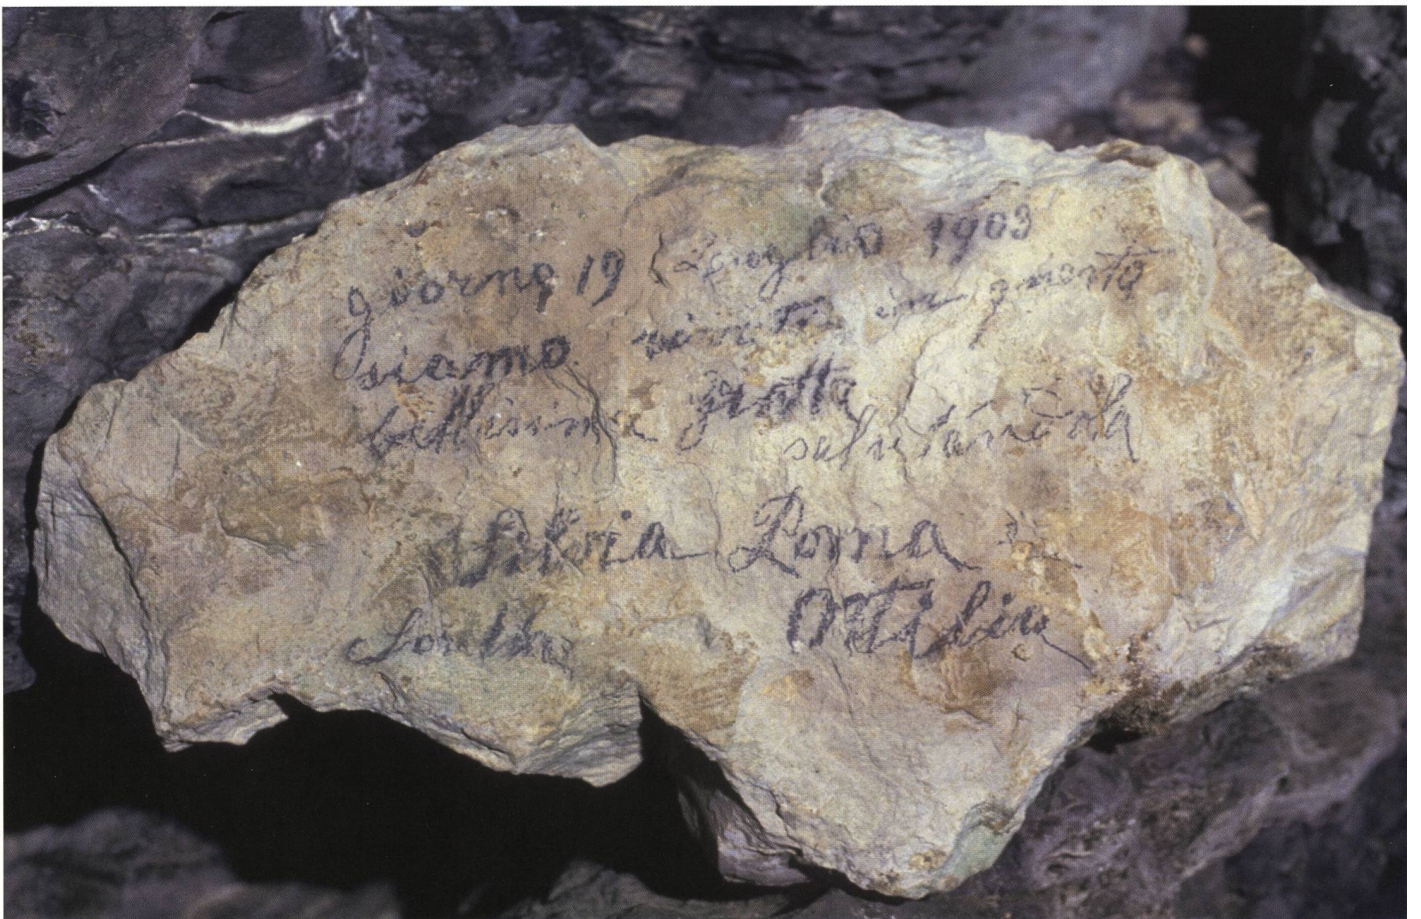 giorno 19 Lug lio 1903
siamo venuti in questa
bellisima grotta
salutandola
Silvia Poma
Ottilia